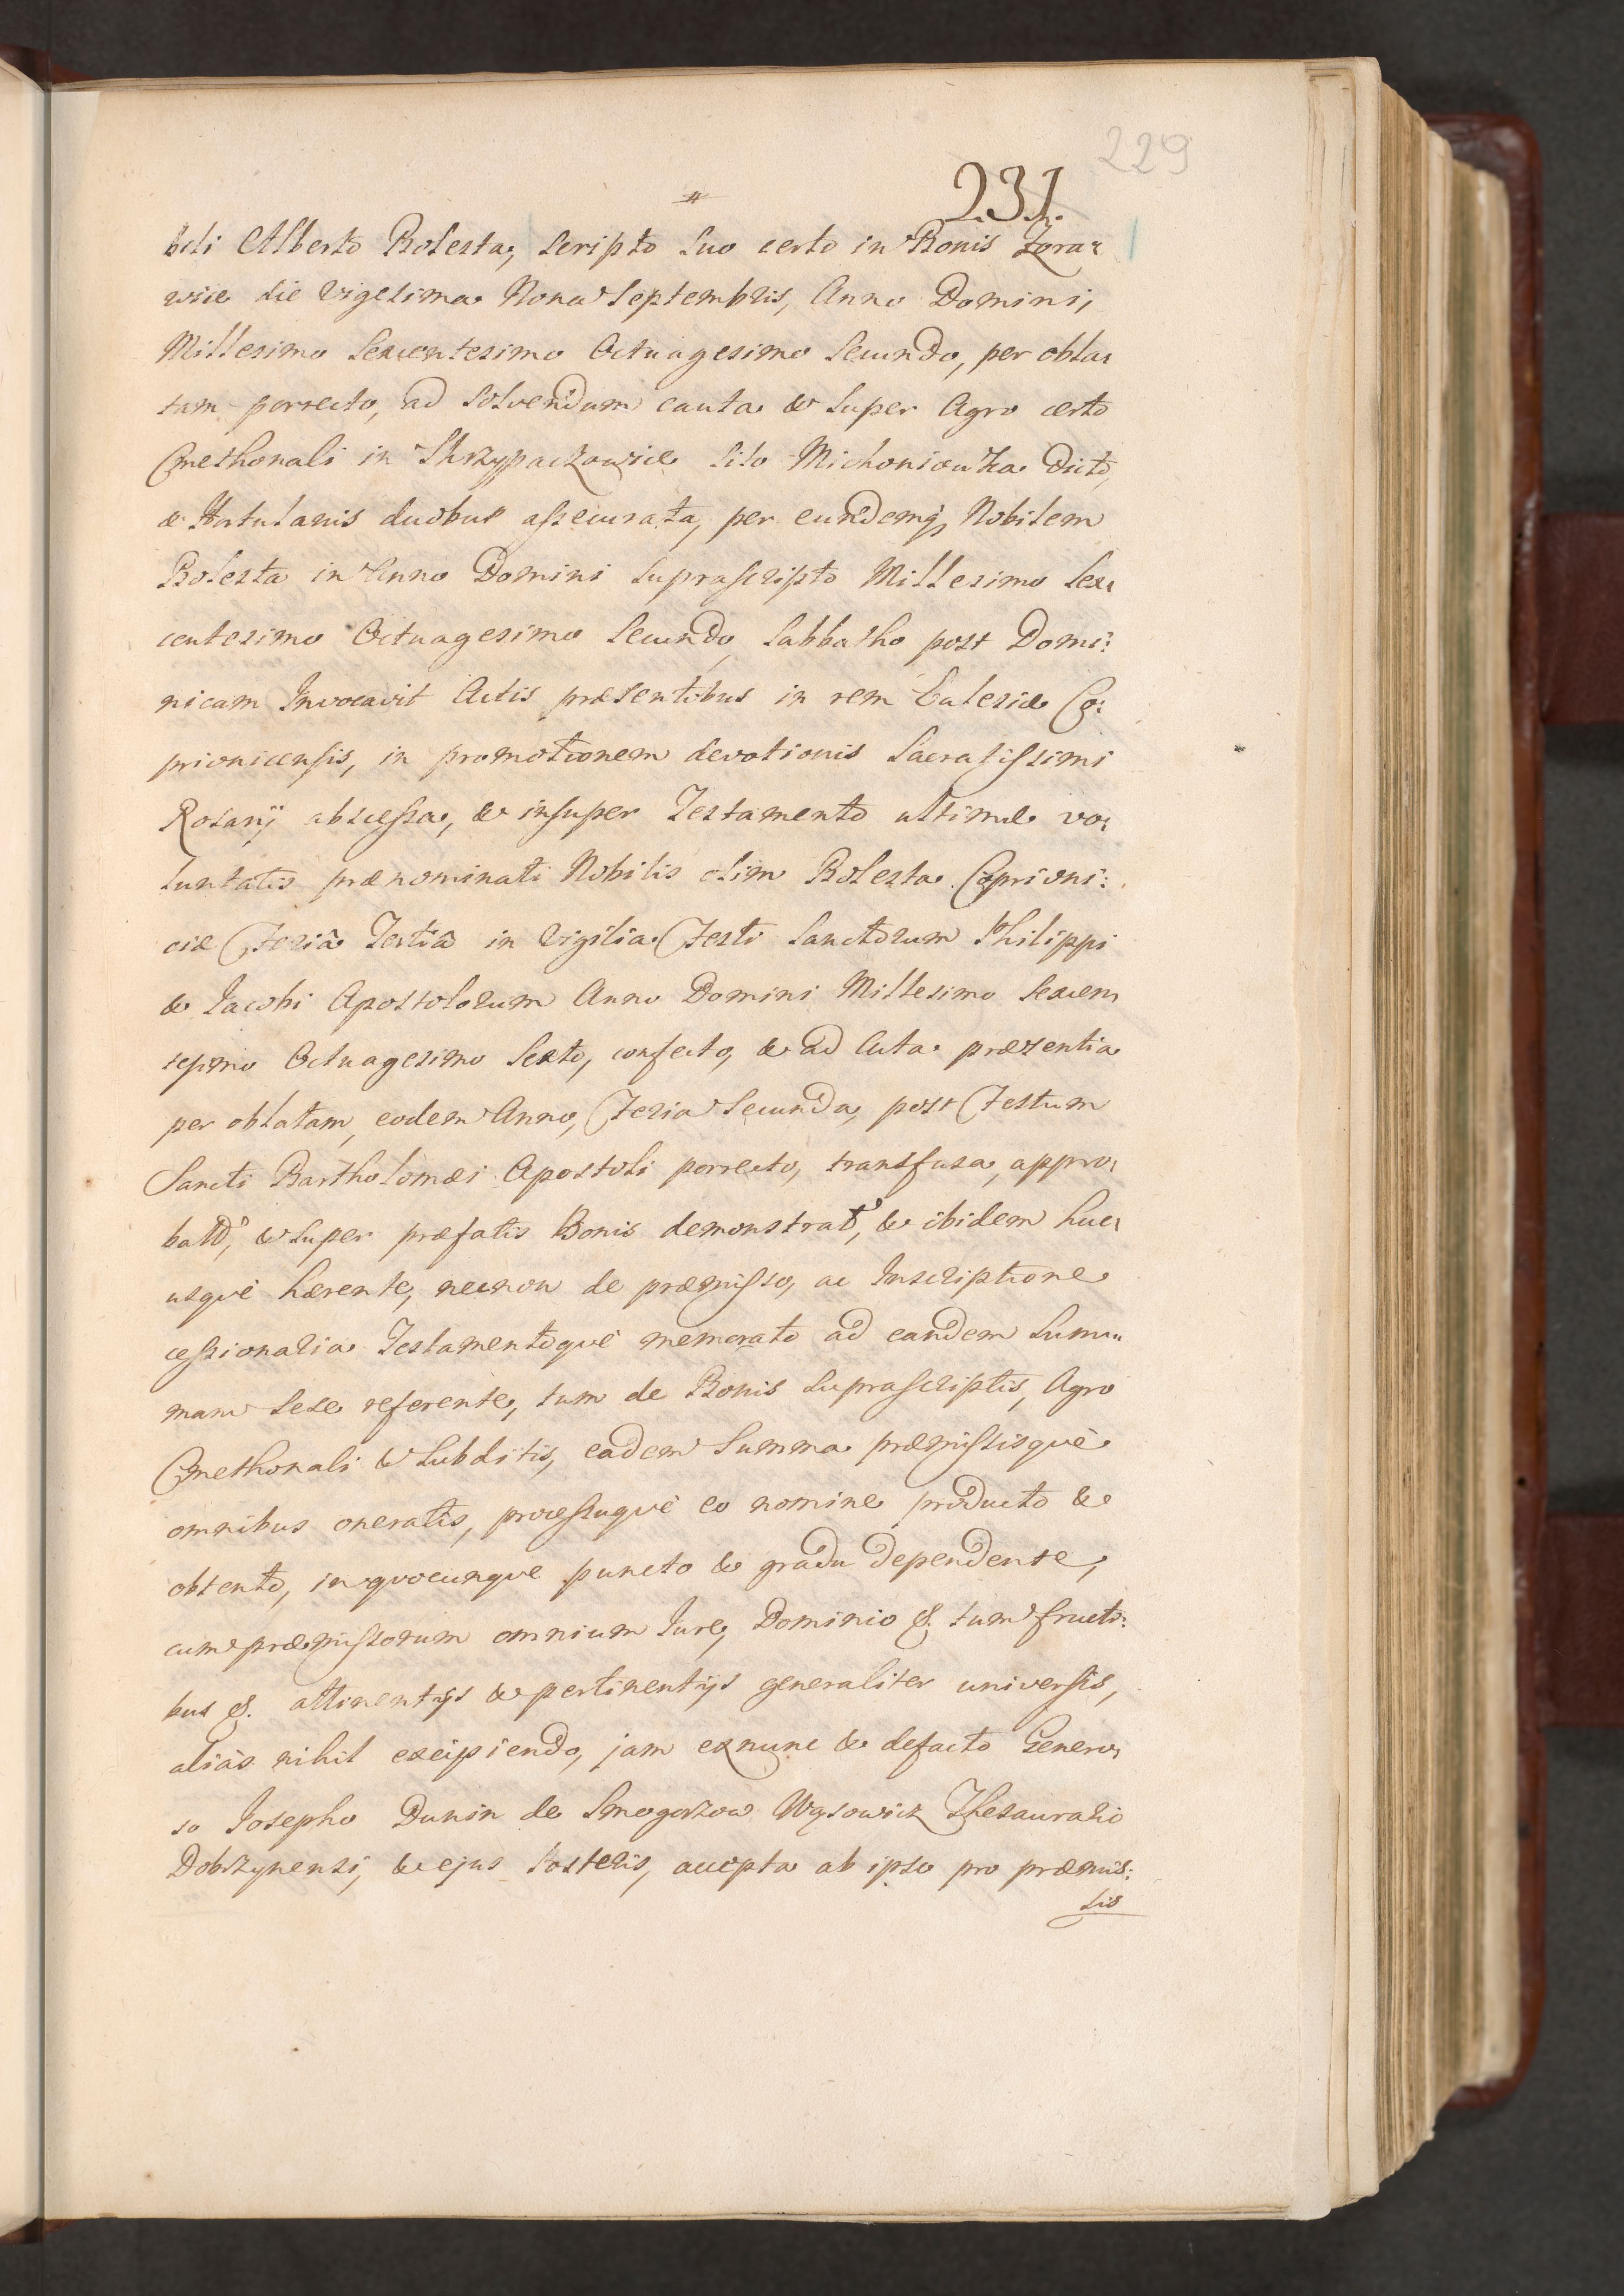 229
231.
bili Alberto Bolesta, scripto suo certo in Bonis Zora-
wice die Vigesima Nona Septembris, Anno Domini,
Millesimo Sexcentesimo Octuagesimo Secundo, per obla-
tam porrecto, ad solvendum cauta & super Agro certo
Cmethonali in Skrzypaczowice sito Michoniowka dicto,
& Hortulanis duobus assecurata, per eundemq, Nobilem
Bolesta in Anno Domini suprascripto Millesimo Sex-
centesimo Octuagesimo Secundo, Sabbatho post Domi:
nicam Invocavit Actis præsentibus in rem Eclesiæ Co:
privnicensis, in promotionem devotionis Sacratissimi
Rosarij abscessa, & insuper Testamento ultimæ vo-
luntatis prænominati Nobilis olim Bolesta Coprivni:
ciæ Feriâ Tertiâ in Vigilia Festi Sanctorum Philippi
& Jacobi Apostolorum Anno Domini Millesimo Sexcen
tesimo Octuagesimo Sexto, confecto, & ad Acta præsentia
per oblatam, eodem Anno, Feria Secunda, post Festum
Sancti Bartholomæi Apostoli porrecto, transfusa, appro-
bato, & super præfatis Bonis demonstrat, & ibidem huc-
usquè hærente, necnon de præmisso, ac Inscriptione
cessionaria Testamentoquè memorato ad eandem Sum-
mam sese referente, tum de Bonis suprascriptis, Agro
Cmethonali & Subditis, eadem Summa præmissisquè
omnibus oneratis, processuquè eo nomine producto &
obtento, in quocunque puncto & gradu dependente,
cum præmissorum omnium Jure, Dominio &. tum fructi:
bus &. attinentijs & pertinentijs generaliter universis,
aliàs nihil excipiendo, jam exnunc & defacto Genero-
so Josepho Dunin de Smogorzow Wąsowicz Thesaurario
Dobrzynensi, & ejus Posteris, accepta ab ipso pro præmis:
sis